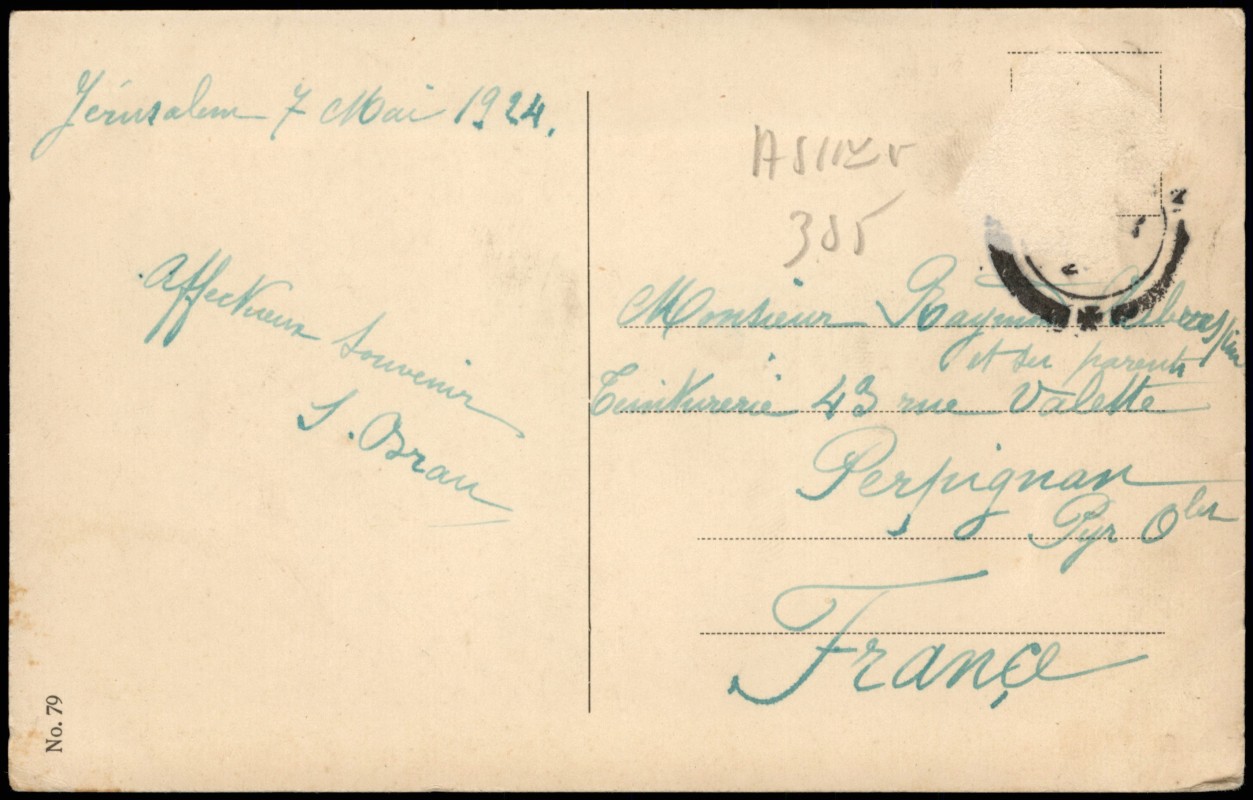 Jérusalem 7 Mai 1924.
Affectueux Souvenir
S. Brau
385
Monsieur Raymond
et ses parents
Teinturerie 43 rue Valette
Perpignan
Pyr Oles
France
No. 79